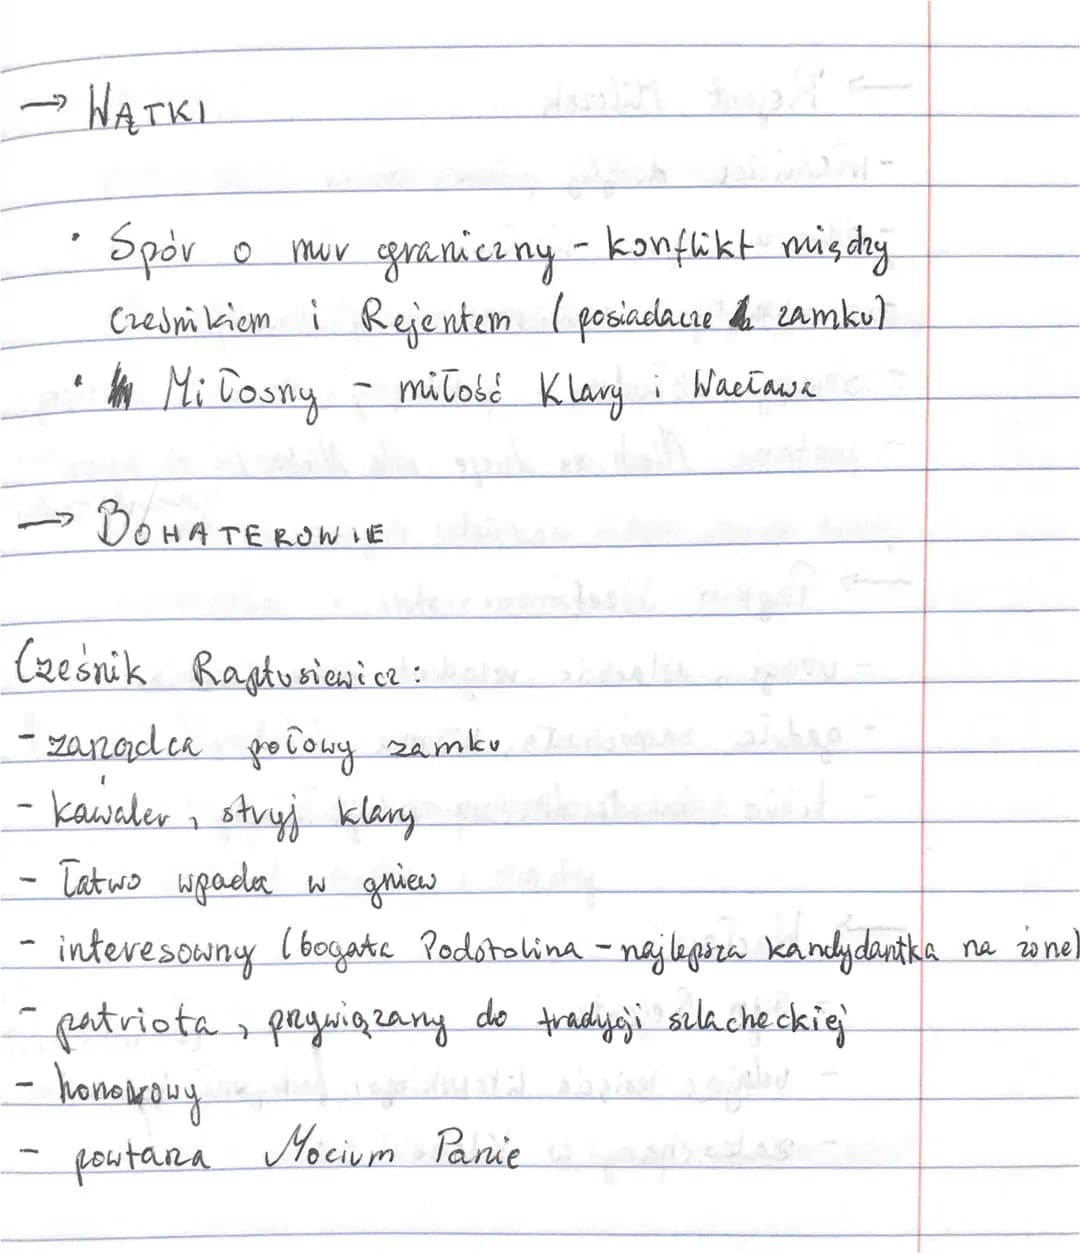 → WĄTKI
• Spór o mur graniczny - konflikt między
Cześnikiem i Rejentem (posiadacze zamku)
• Miłosny - miłość Klary i Wacława
→ BOHATEROWIE
Cześnik Raptusiewicz:
- zarządca połowy zamku
- kawaler, stryj klary
- łatwo wpada w gniew
- interesowny (bogata Podstolina - najlepsza kandydantka na żonę)
- patriota, przywiązany do tradycji szlacheckiej
- honorowy
- powtarza Mocium Panie